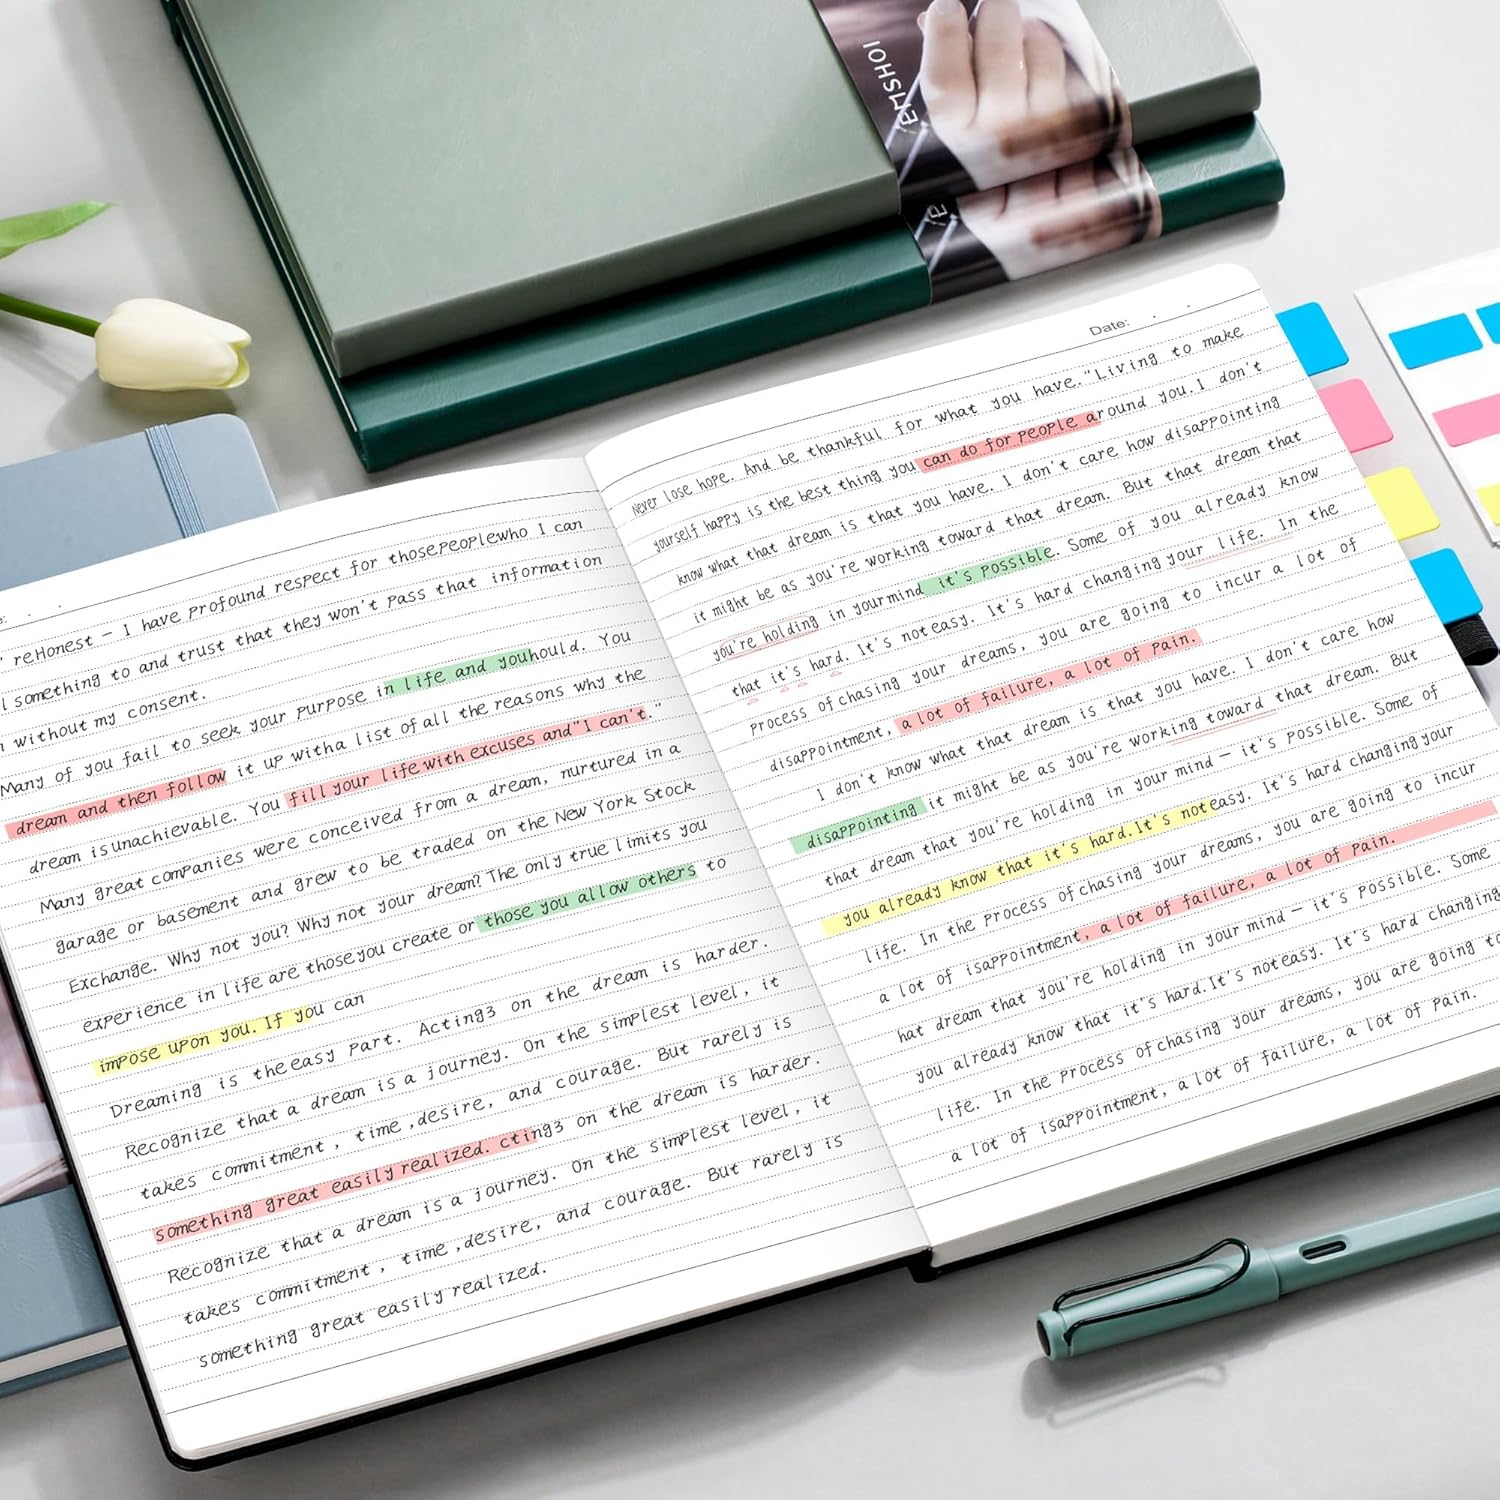 EMSHOI
e:
' reHonest – I have profound respect for thosepeoplewho I can
l something to and trust that they won't pass that information
without my consent.
Many of you fail to seek your purpose in life and youhould. You
dream and then follow it up witha list of all the reasons why the
dream isunachievable. You fill your life with excuses and"I can't."
Many great companies were conceived from a dream, nurtured in a
garage or basement and grew to be traded on the New York Stock
Exchange. Why not you? Why not your dream? The only true limits you
experience in life are those you create or those you allow others to
impose upon you. If you can
Dreaming is the easy part. Acting3 on the dream is harder.
Recognize that a dream is a journey. On the simplest level, it
takes commitment, time,desire, and courage. But rarely is
something great easily realized. cting3 on the dream is harder.
Recognize that a dream is a journey. On the simplest level, it
takes commitment, time,desire, and courage. But rarely is
something great easily realized.
Date:
Never lose hope. And be thankful for what you have."Living to make
yourself happy is the best thing you can do for people around you.I don't
know what that dream is that you have. I don't care how disappointing
it might be as you're working toward that dream. But that dream that
you're holding in your mind it's possible. Some of you already know
that it's hard. It's not easy. It's hard changing your life. In the
process of chasing your dreams, you are going to incur a lot of
disappointment, a lot of failure, a lot of pain.
I don't know what that dream is that you have. I don't care how
disappointing it might be as you're working toward that dream. But
that dream that you're holding in your mind – it's possible. Some of
you already know that it's hard.It's not easy. It's hard changing your
life. In the process of chasing your dreams, you are going to incur
a lot of isappointment, a lot of failure, a lot of pain.
hat dream that you're holding in your mind – it's possible. Some
you already know that it's hard.It's not easy. It's hard changing
life. In the process of chasing your dreams, you are going to
a lot of isappointment, a lot of failure, a lot of pain.